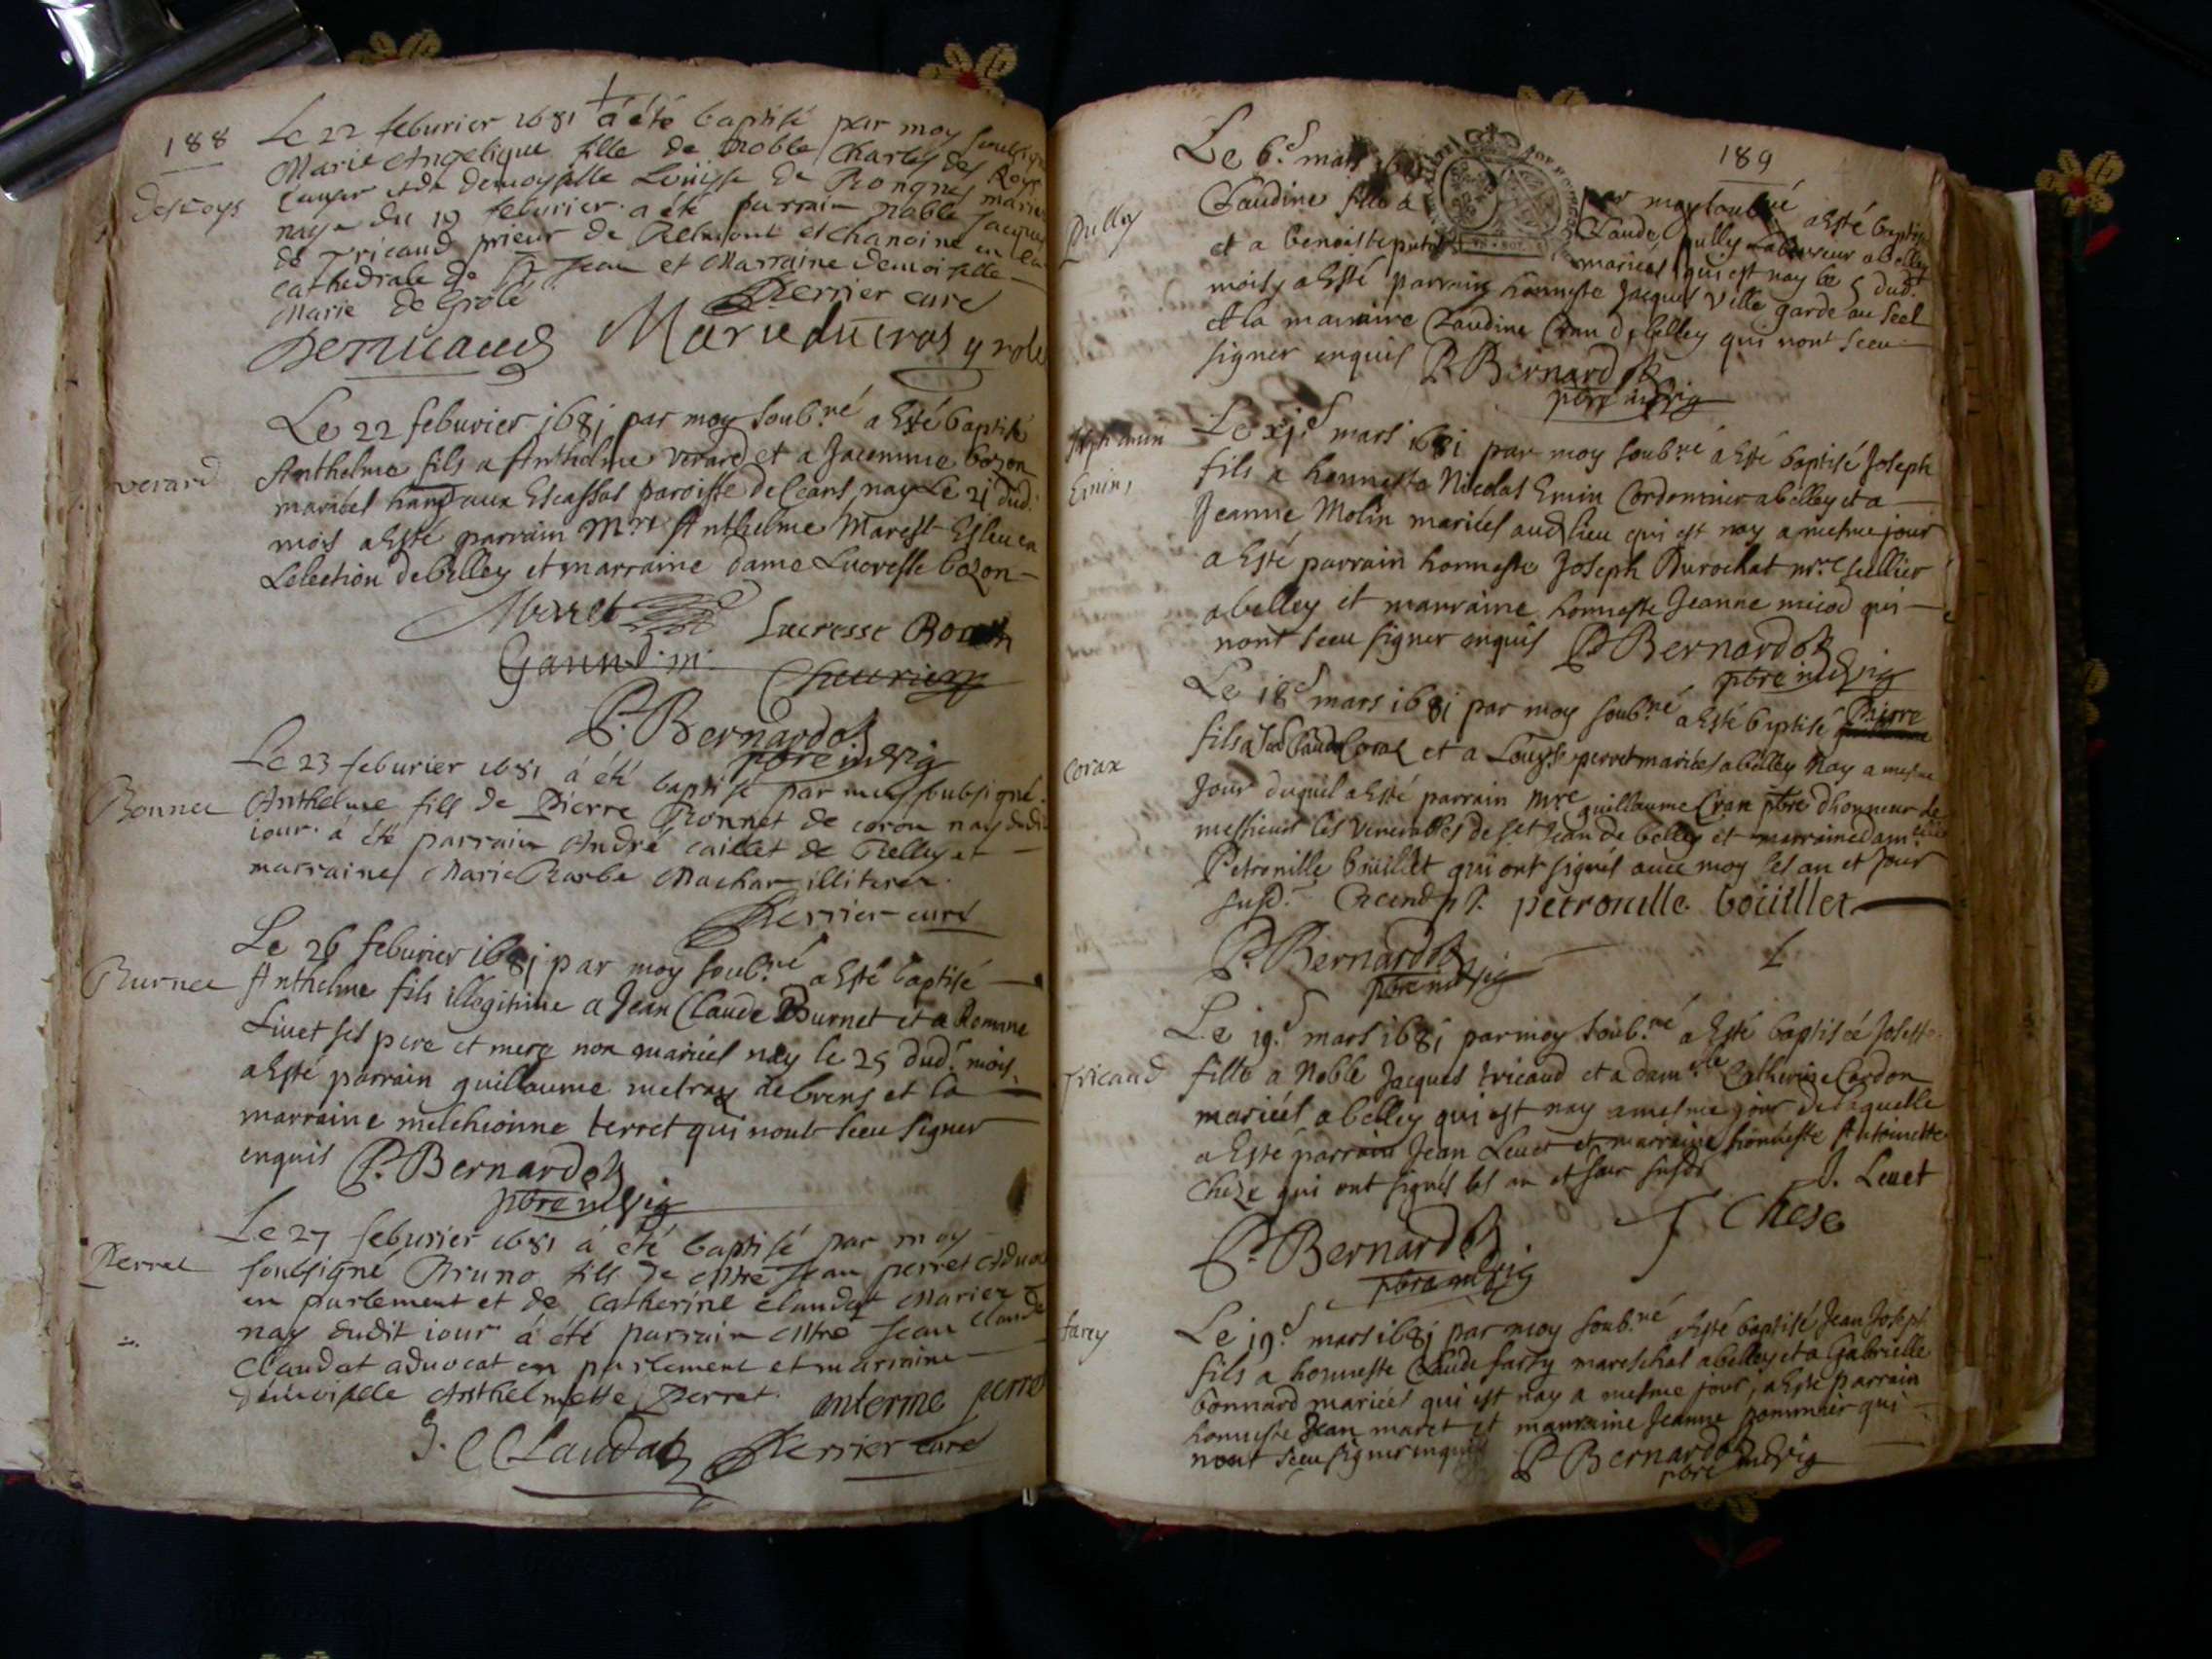 188
Le 22 feburier 1681 á été baptisé par moy soubsigné
Marie Angelique fille de Noble Charles des Roys
Escuyer et de demoyselle Louisse de Rongnes mariés
naye du 19 feburier. a été parrain Noble Jacques
de Tricaud prieur de Belmont et chanoine en la
cathedrale de St Jean et Marraine demoiselle
Marie de Grolé
Perrier curé
DeTricaud
Marie du
des roys
Le 22 feburier 1681 par moy soub.né a Esté baptisé
Anthelme fils a Anthelme verard et a Jacemme bozon
mariéel aux Escassas paroisse de Ceans, nay Le 21 dud.
mois a Esté parrain Mre Anthelme Marest Esleu en
Lelection de belley et marraine dame Lucresse bozon
verard
Lucresse Bozon
P. Bernardot
pbre
Le 23 feburier 1681 á été baptisé par moy soubsigné
Anthelme fils de Pierre Bonnet de coron nay dudit
iour. á été parrain André caillet de Belley et
marraine Marie Barbe Machar illiterez.
Bonnet
Perrier curé
Le 26 feburier 1681 par moy soub.né a Esté baptisé
Anthelme fils illegitime a Jean Claude Burnet et a Romane
Livet ses pere et mere non mariéel nay le 25 dud. mois,
a Esté parrain guillaume metray de brens et la
marraine melchionne terret qui nont sceu signer
enquis P. Bernardot
pbre
Burnet
Le 27 feburier 1681 á été baptisé par moy
soubsigné Bruno fils de Mtre Jean perret aduocat
en parlement et de Catherine Claudat Mariez
nay dudit iour á été parrain Mtre Jean Claude
Claudat aduocat en parlement et marraine
demoiselle Anthelmette Perret.
Perret
anterme perret
J. C Claudat Perrier curé
189
Le 6.e mars par moy soub.né a Esté baptisée
Claudine fille a Claude pully Laboureur a belley
et a benoiste mariéel, qui est nay le 5 dud.
mois, a Esté parrain honneste Jacques Ville garde au seel
et la marraine Claudine Cran de belley qui nont sceu
signer enquis P. Bernardot
pbre
Pulley
Le xj.e mars 1681 par moy soub.né a Esté baptisé Joseph
fils a honneste Nicolas Emin Cordonnier a belley et a
Jeanne Molin mariéel aud. lieu qui est nay a mesme jour
a Esté parrain honneste Joseph Durochat mre sellier
a belley et marraine honneste Jeanne micod qui
nont sceu signer enquis P. Bernardot
pbre
Emin
Le 18.e mars 1681 par moy soub.né a Esté baptisé Pierre
fils a Jean Claude Corax et a Louyse perret mariéel a belley Nay a mesme
Jour duquel a Esté parrain Mre guillaume Cran pbre dhonneur de
messieurs les Venerables de St Jean de belley et marraine dam.elle
Petronille bouillet qui ont signés avec moy les an et jour
susd.
petronille boüillet
Corax
P. Bernardot
pbre
Le 19.e mars 1681 par moy soub.né a Esté baptisée Josette
fille a Noble Jacques tricaud et a dam.elle Catherine Cardon
mariéel a belley qui est nay a mesme jour de laquelle
a Esté parrain Jean Levet et marraine honneste Antoinette
Cheze qui ont signés les an et jour susds
J. Levet
Chese
tricaud
P. Bernardot
pbre
Le 19.e mars 1681 par moy soub.né a Esté baptisé Jean Joseph
fils a honneste Claude farcy mareschal a belley et a Gabrielle
bonnard mariéel qui est nay a mesme jour, a Esté parrain
honneste Jean maret et marraine Jeanne pommier qui
nont sceu signer enquis P. Bernardot
pbre
farcy